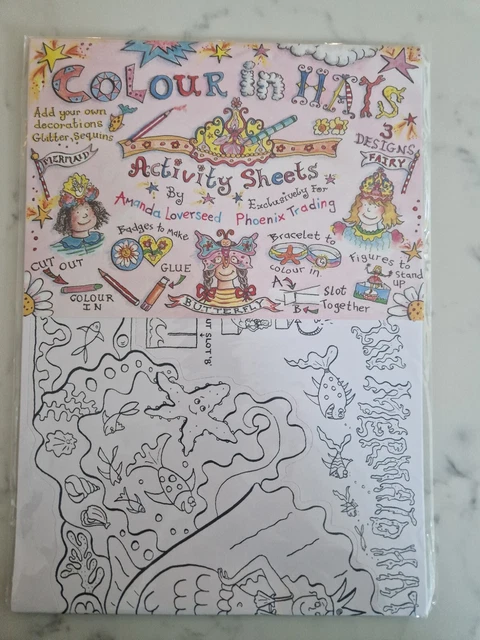 COLOUR in HATS
Add your own
decorations
Glitter, Sequins
3
DESIGNS
MERMAID
FAIRY
Activity Sheets
By
Amanda Loverseed
Exclusively For
Phoenix Trading
Badges to Make
Bracelet to
colour in.
Figures to
stand
up
CUT OUT
GLUE
COLOUR
IN
BUTTERFLY
A
B
Slot
Together
SLOT B
MERMAID HAT